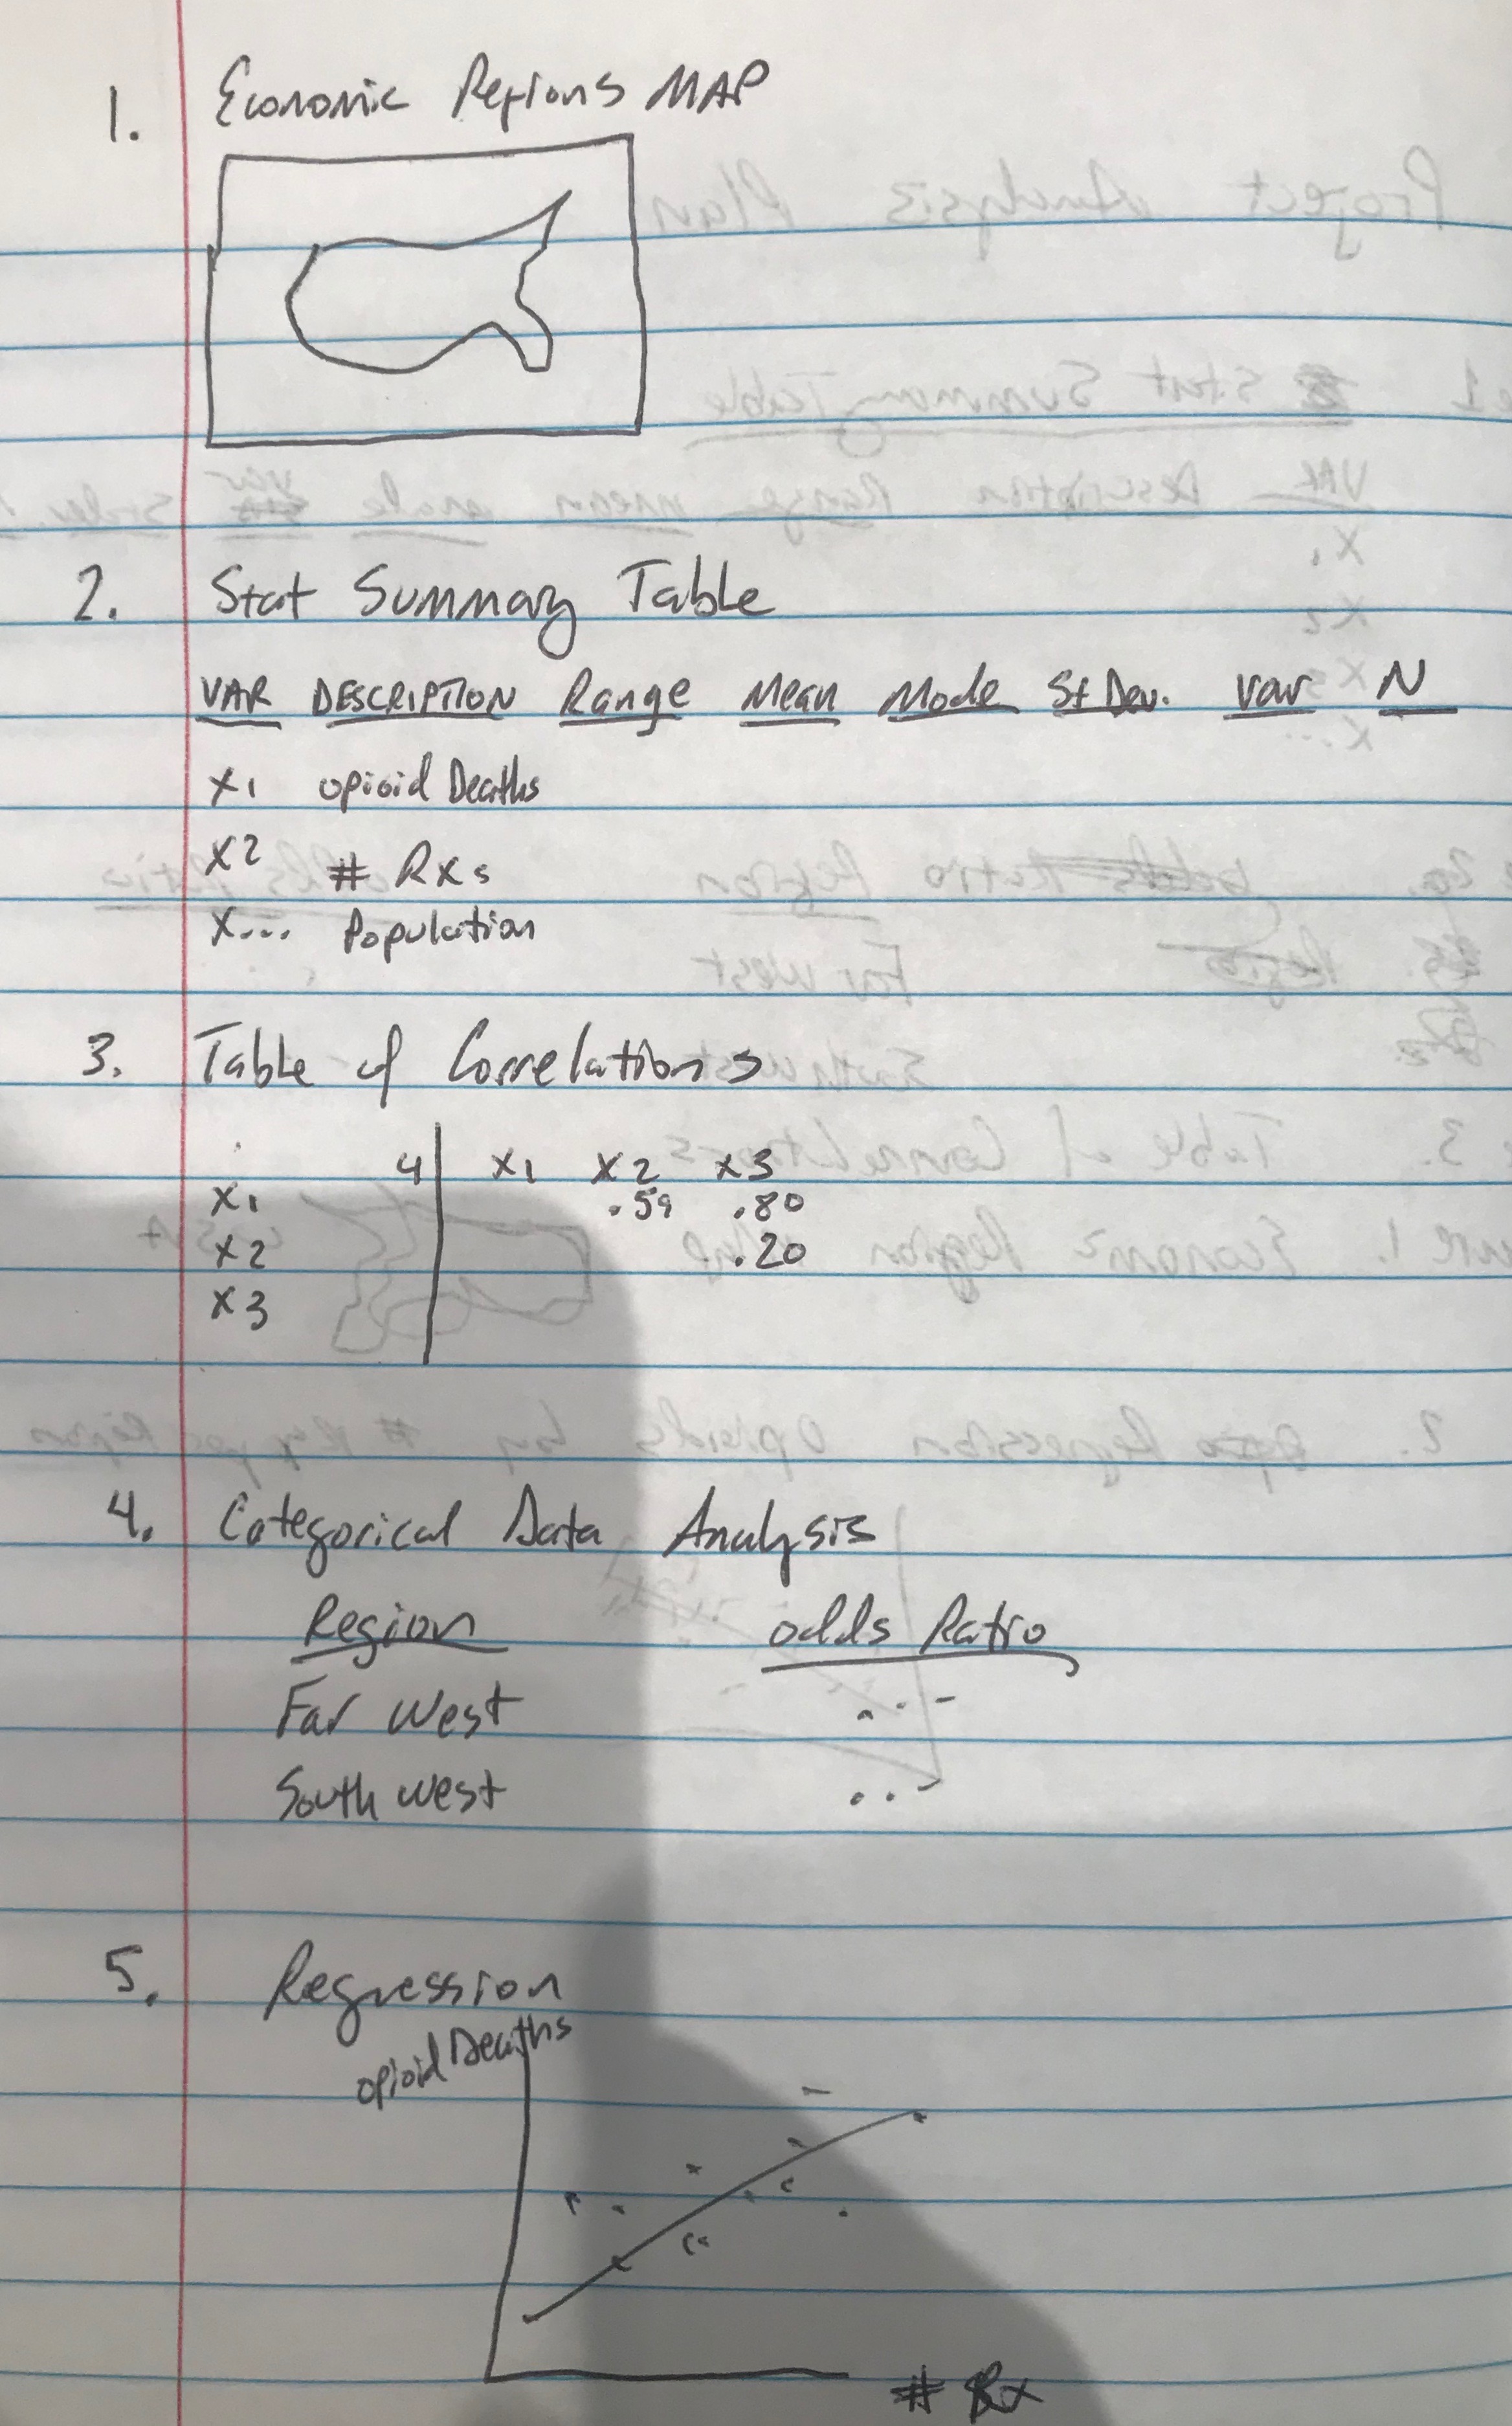 1. Economic Regions MAP
2. Stat Summary Table
VAR DESCRIPTION Range Mean Mode St Dev. Var N
X1 opioid Deaths
X2 # Rxs
X... Population
3. Table of Correlations
4 X1 X2 X3
X1 .59 .80
X2 .20
X3
4. Categorical Data Analysis
Region odds Ratio
Far West ...
South West ...
5. Regression
opioid Deaths
# Rx